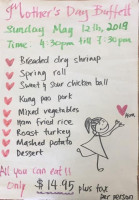 Mother's Day Buffet
Sunday May 12th, 2019
Time 4:30pm till 7:30pm
Breaded dry shrimp
Spring roll
Sweet & sour chicken ball
Kung pao pork
Mixed vegetables
Ham fried rice
Roast turkey
Mashed potato
Dessert
Mom
All you can eat!!
Only $14.95 plus tax
per person